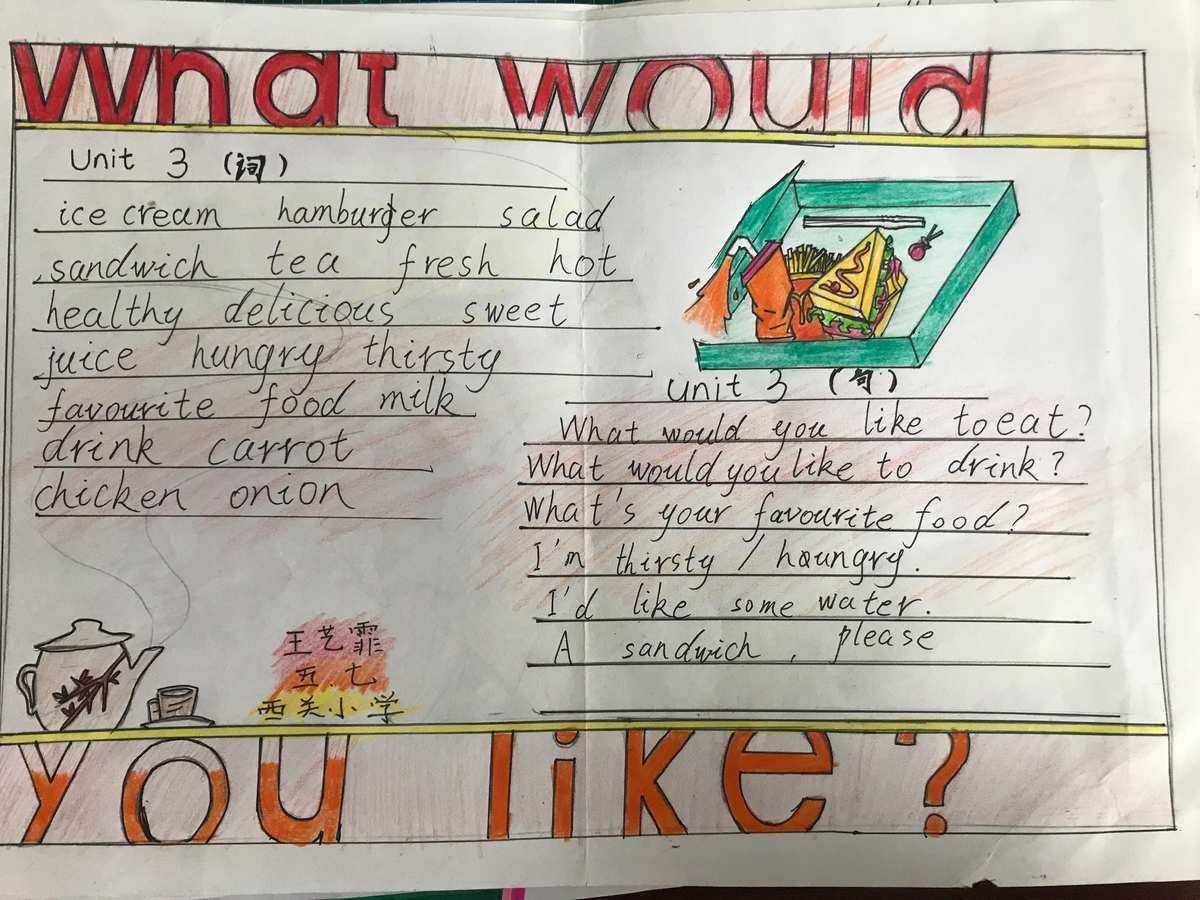 What would
Unit 3 (词)
ice cream hamburger salad
sandwich tea fresh hot
healthy delicious sweet
juice hungry thirsty
favourite food milk
drink carrot
chicken onion
Unit 3 (句)
What would you like to eat?
What would you like to drink?
What's your favourite food?
I'm thirsty / haungry.
I'd like some water.
A sandwich, please
王艺霏
五.七
西关小学
you like?